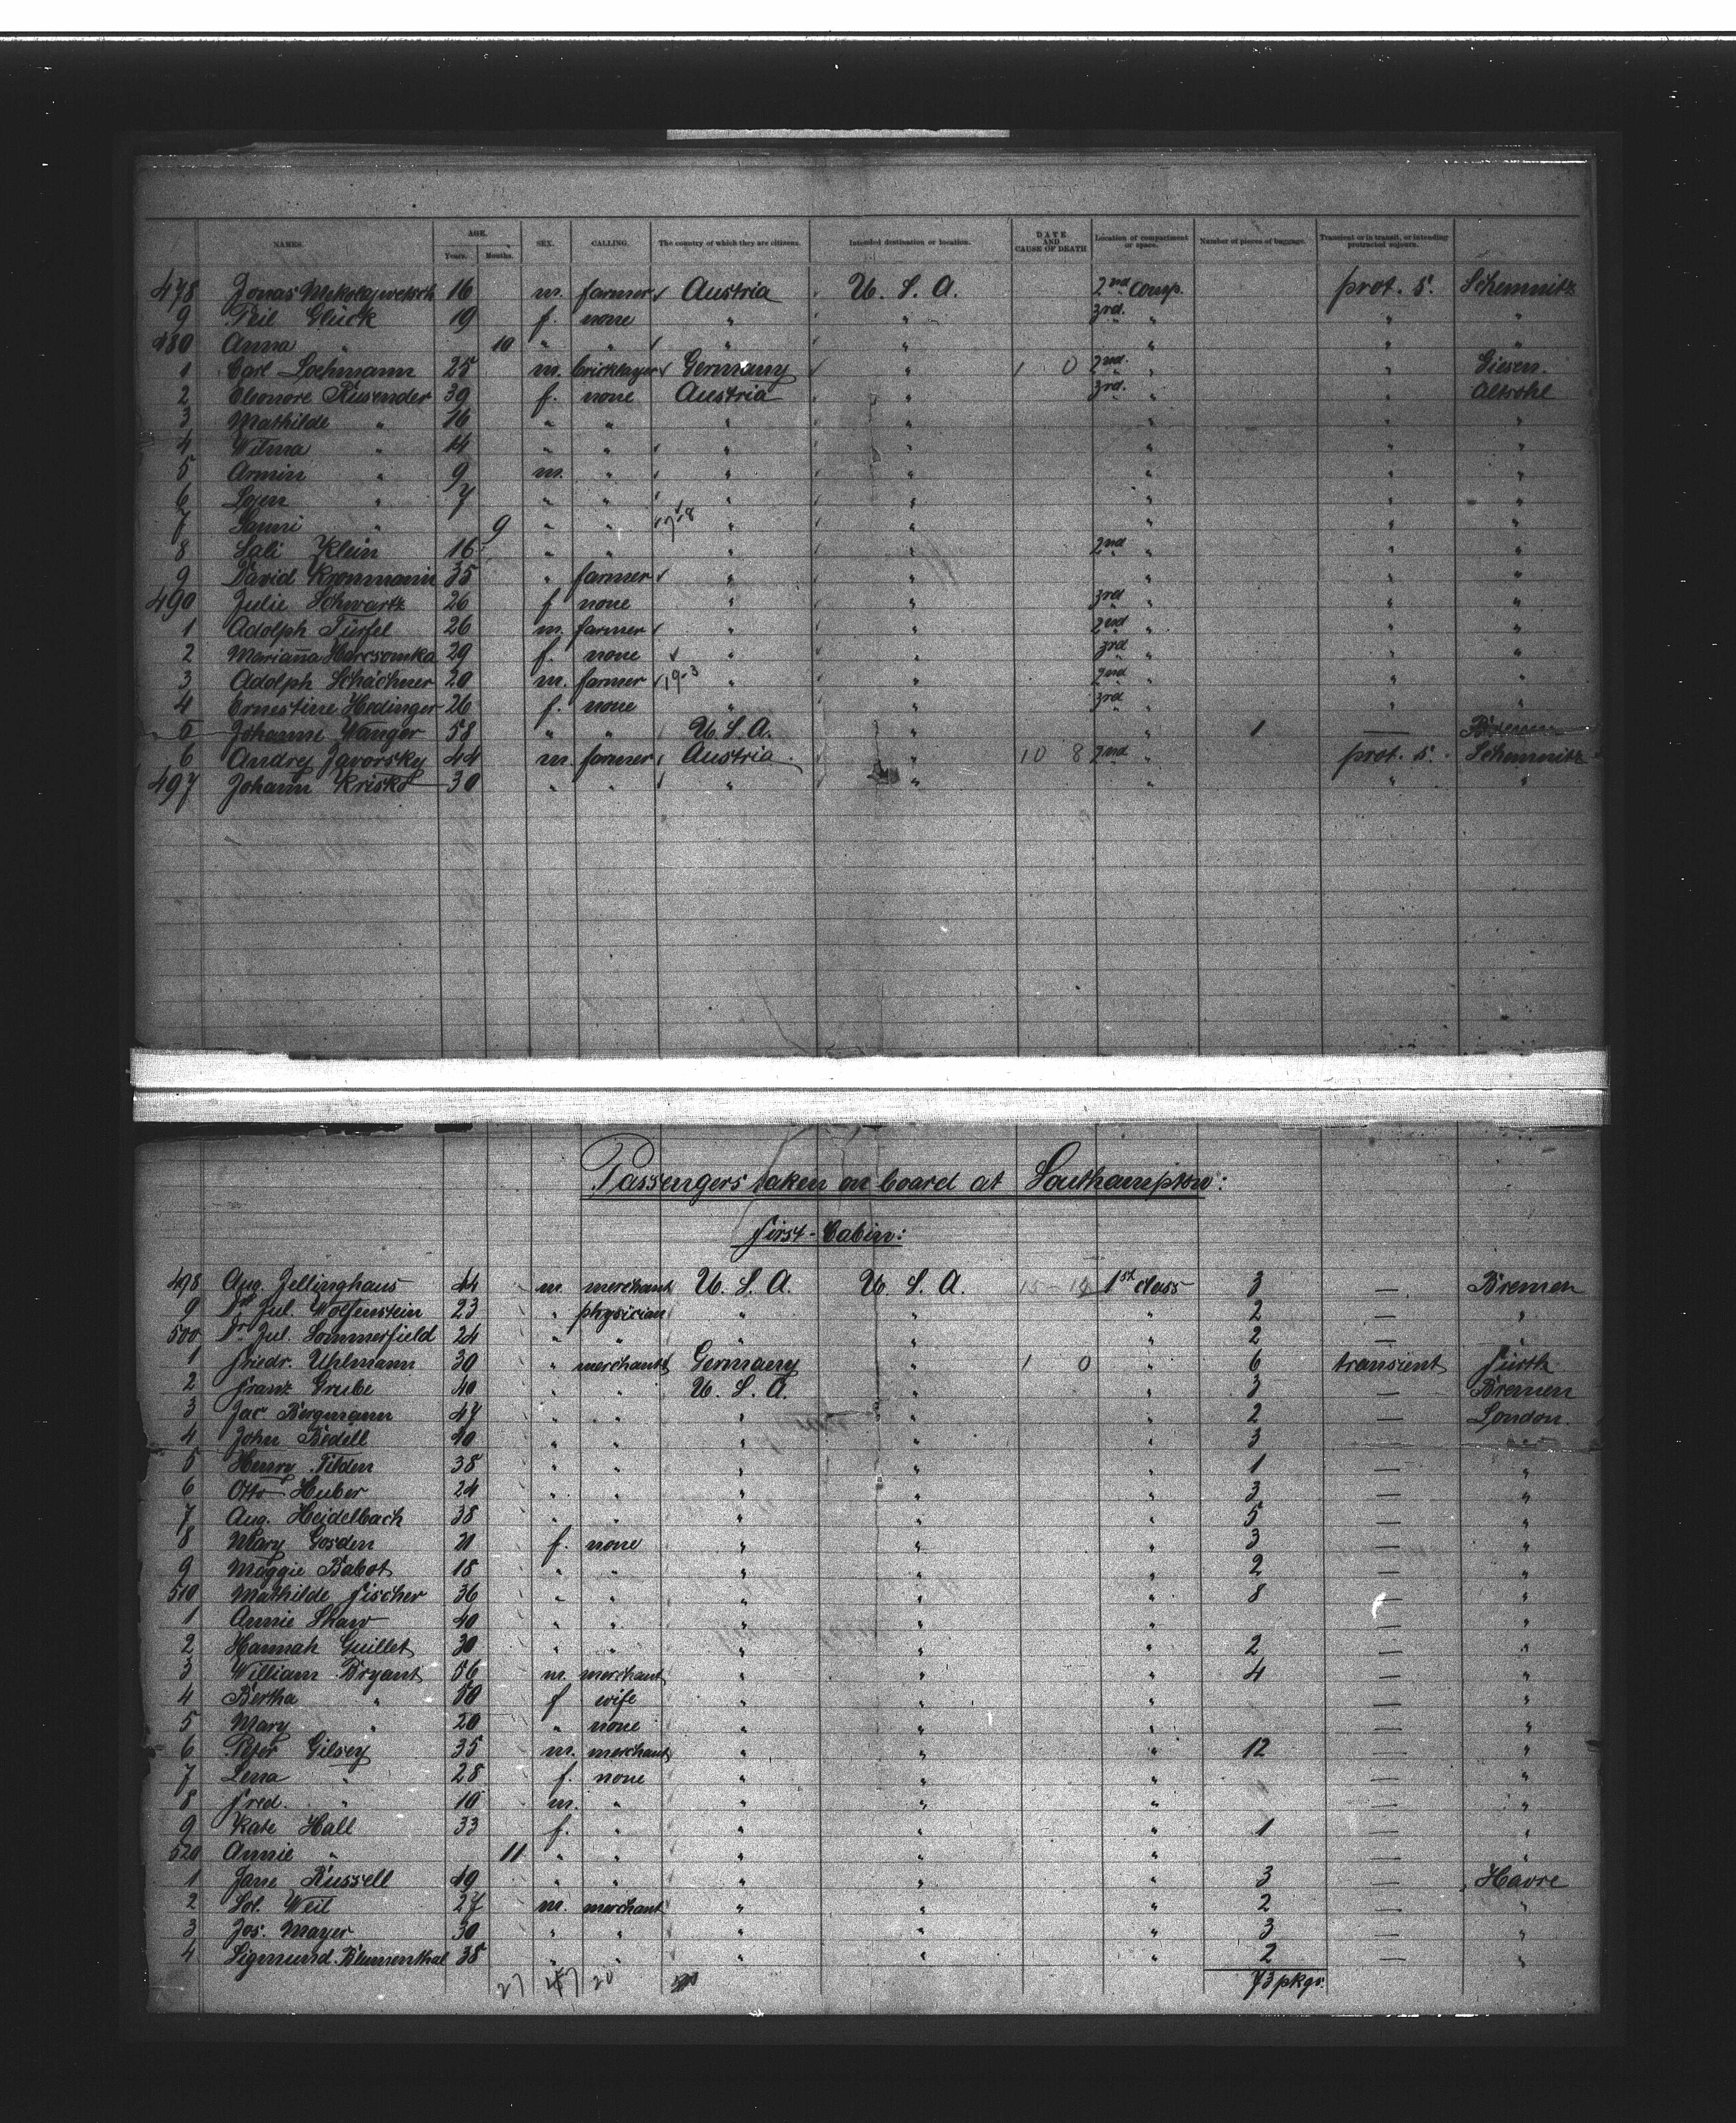 NAMES. AGE. Years. Months. SEX. CALLING. The country of which they are citizens. Intended destination or location. DATE AND CAUSE OF DEATH Location of compartment or space. Number of pieces of baggage. Transient or in transit, or intending protracted sojourn.
478 Jonas 16 m. farmer Austria U. S. A. 2nd comp. prot. s. Schemnitz
9 Glück 19 f. none " " 3rd " " "
480 Anna " 10 " " " " " " "
1 Carl Lochmann 25 m. bricklayer Germany " 1 0 2nd " " Giesen.
2 Eleonore Rusender 39 f. none Austria " 3rd " " Altsohl
3 Mathilde " 16 " " " " " " "
4 Wilma " 14 " " " " " " "
5 Armin " 9 m. " " " " " "
6 " 7 " " " " " " "
7 " 9 " " " " " " "
8 Sali Klein 16 " " " " 2nd " " "
9 David Kronmann 35 " farmer " " " " "
490 Julie Schwartz 26 f none " " 3rd " " "
1 Adolph Türfel 26 m. farmer " " 2nd " " "
2 Marianna 29 f. none " " 3rd " " "
3 Adolph Schächner 20 m. farmer 19-3 " " 2nd " " "
4 Ernestine Hedinger 26 f. none " " 3rd " " "
5 Johanne Wanger 58 " " U. S. A. " " 1 — Bremen
6 Andrej Javorsky 44 m. farmer Austria " 10 8 2nd " prot. s. Schemnitz
497 Johann 30 " " " " " " "
Passengers taken on board at Southampton:
First-Cabin:
498 Aug. Zellinghaus 44 m. merchant U. S. A. U. S. A. 1st class 3 — Bremen
9 Dr Jul. Wolfenstein 23 " physician " " " 2 — "
500 Dr Jul. Sommerfield 24 " " " " " 2 — "
1 Friedr. Uhlmann 30 " merchant Germany " 1 0 " 6 transient Fürth
2 Franz Grube 40 " " U. S. A. " " 3 — Bremen
3 Jac Bergmann 47 " " " " " 2 — London.
4 John Bedell 40 " " " " " 3 — "
5 Henry Tilden 38 " " " " " 1 — "
6 Otto Huber 24 " " " " " 3 — "
7 Aug. Heidelbach 38 " " " " " 5 — "
8 Mary Gosden 21 f. none " " " 3 — "
9 Maggie Babot 18 " " " " " 2 — "
510 Mathilde Fischer 36 " " " " " 8 — "
1 Annie Shaw 40 " " " " " — "
2 Hannah Guillet 30 " " " " " 2 — "
3 William Bryant 56 m. merchant " " " 4 — "
4 Bertha " 50 f wife " " " — "
5 Mary " 20 " none " " " — "
6 Peter Gilsey 35 m. merchant " " " 12 — "
7 Lena " 28 f. none " " " — "
8 Fred. " 10 m. " " " " — "
9 Kate Hall 33 f. " " " " 1 — "
520 Annie " 11 " " " " " — "
1 Jane Russell 49 " " " " " 3 — Havre
2 Sol. Weil 27 m. merchant " " " 2 — "
3 Jos. Mayer 30 " " " " " 3 — "
4 Sigmund Blumenthal 38 " " " " " 2 — "
27 20 73 pkgs.